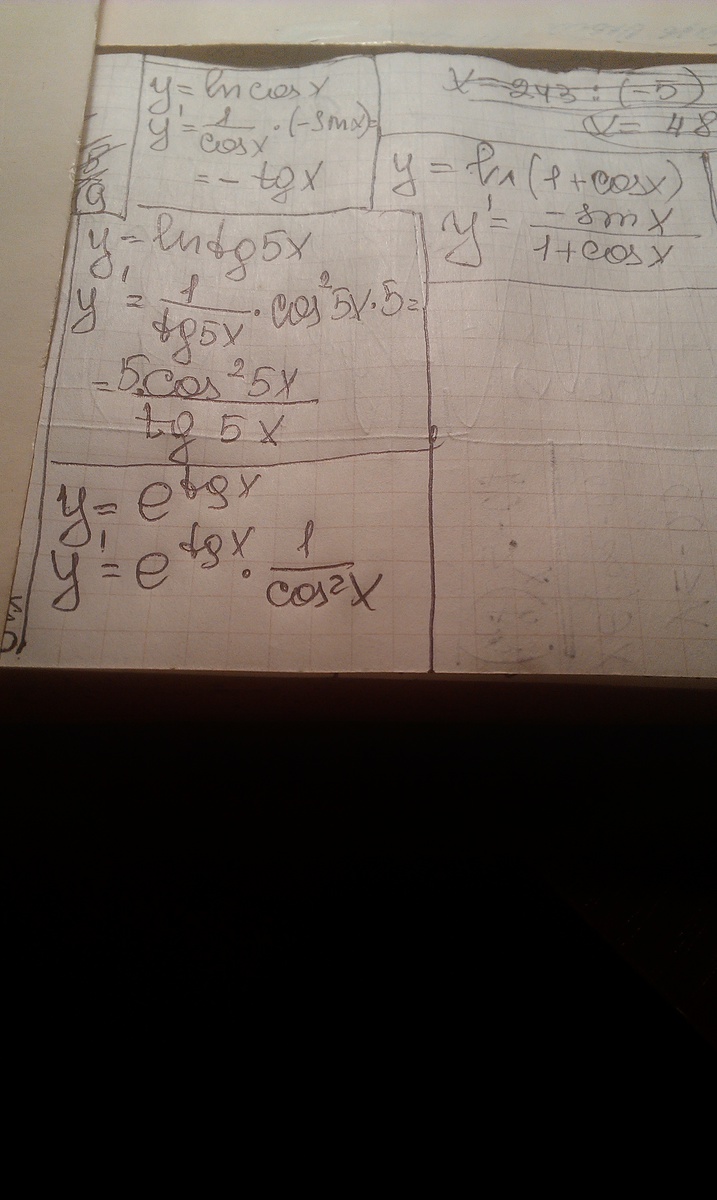 y = ln cos x
y' = 1/cos x · (-sin x) =
= - tg x
x = 243 : (-5)
x = 48
y = ln (1 + cos x)
y' = -sin x / 1 + cos x
y = ln tg 5x
y' = 1/tg 5x · cos² 5x · 5 =
= 5 · cos² 5x / tg 5x
y = e^tg x
y' = e^tg x · 1/cos² x